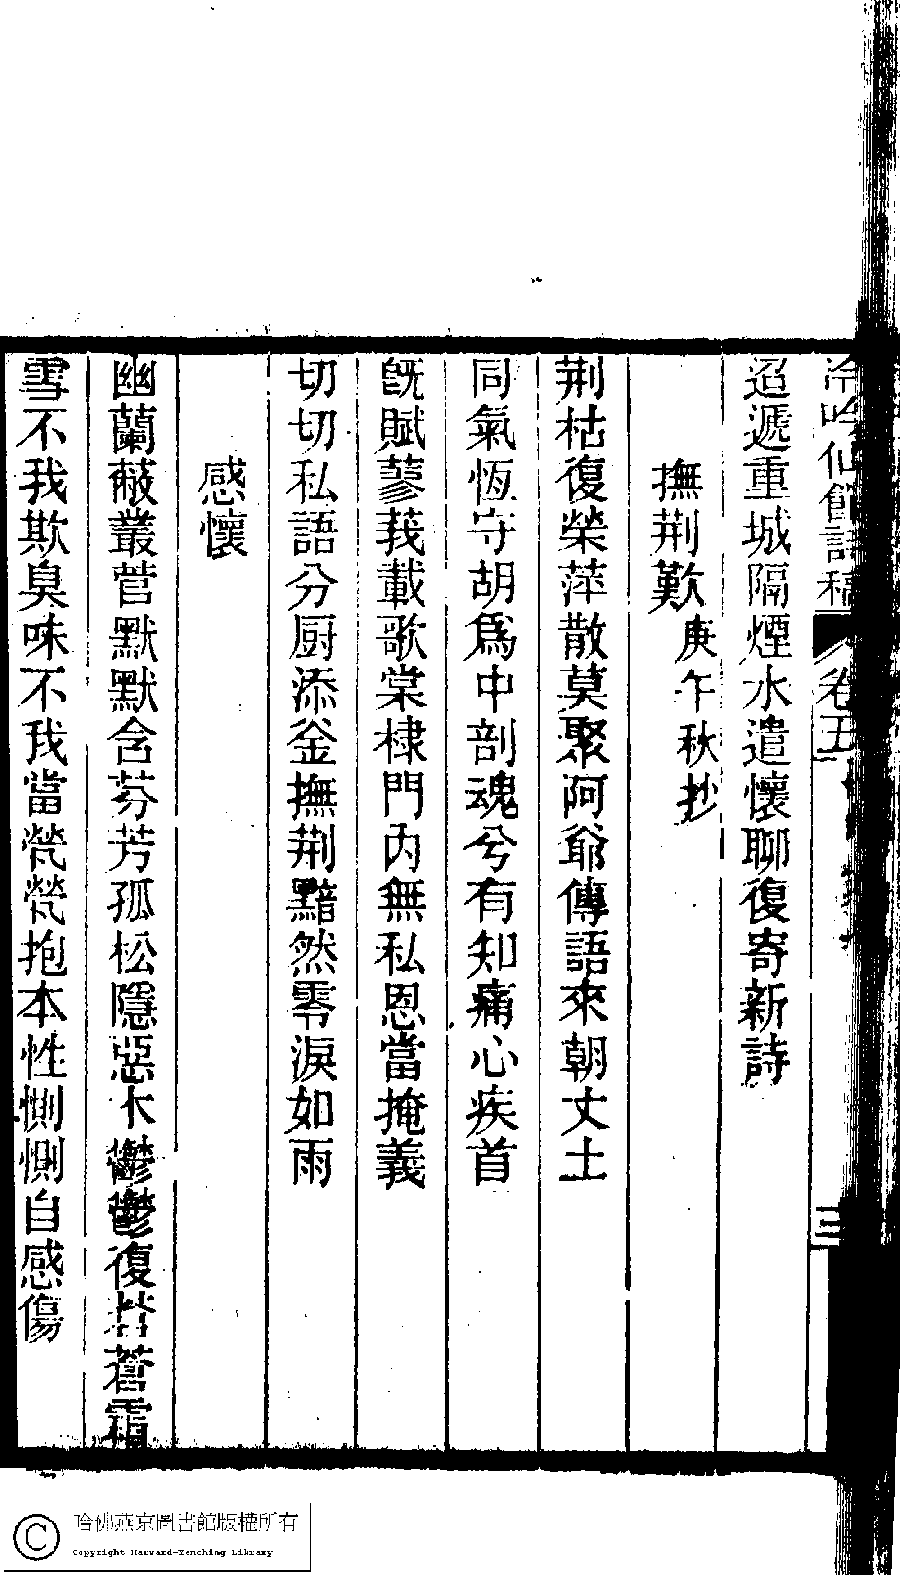 冷吟仙館詩稿 卷五 三
迢遞重城隔煙水遣懷聊復寄新詩
撫荆歎庚午秋抄
荆枯復榮萍散莫聚阿爺傳語來朝丈土
同氣恆守胡爲中剖魂兮有知痛心疾首
旣賦蓼莪載歌棠棣門内無私恩當掩義
切切私語分厨添釜撫荆黯然零淚如雨
感懷
幽蘭蔽叢菅默默含芬芳孤松隱惡木鬱鬱復蒼蒼霜
雪不我欺臭味不我當煢煢抱本性惻惻自感傷
哈佛燕京圖書館版權所有
Copyright Harvard-Yenching Library